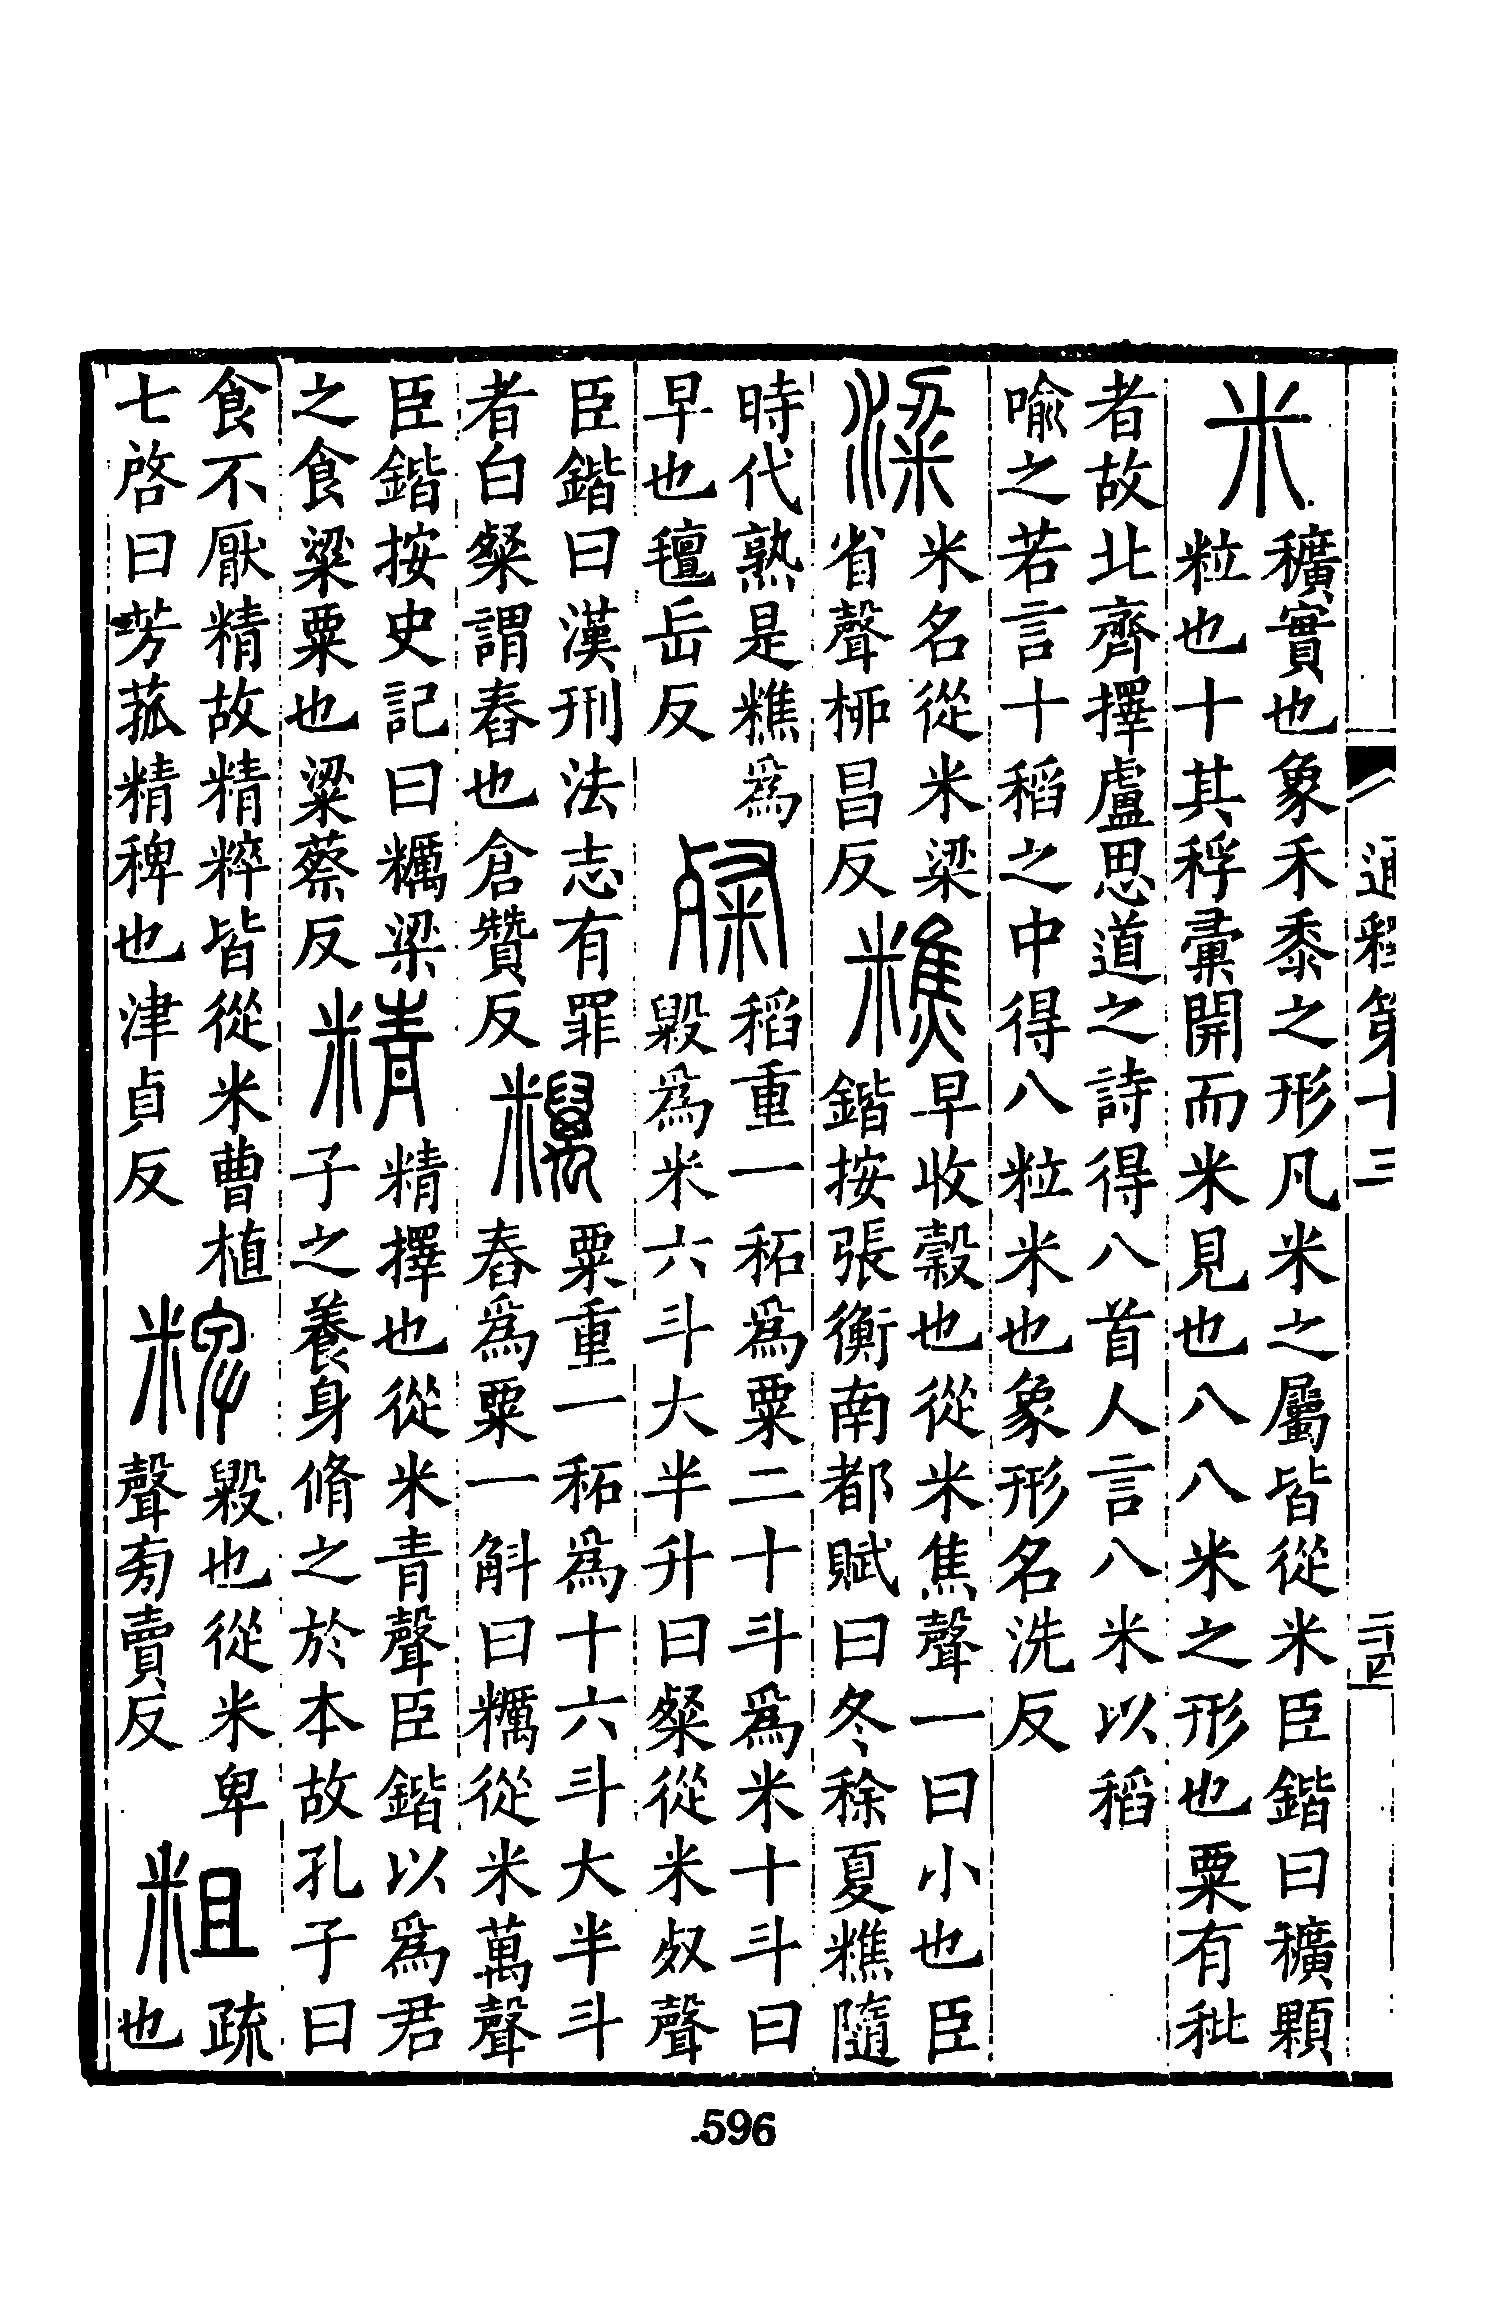 通釋第十三
二十四
米
穬實也象禾黍之形凡米之屬皆從米臣鍇曰穬顆
粒也十其稃彚開而米見也八八米之形也粟有秕
者故北齊擇盧思道之詩得八首人言八米以稻
喻之若言十稻之中得八粒米也象形名洗反
粱
米名從米梁
省聲桺昌反
𥼚
早收縠也從米焦聲一曰小也臣
鍇按張衡南都賦曰冬稌夏𥼚隨
時代熟是𥼚爲
早也氊岳反
粲
稻重一䄷爲粟二十斗爲米十斗曰
毇爲米六斗大半升曰粲從米𣦼聲
臣鍇曰漢刑法志有罪
者白粲謂舂也倉贊反
糲
粟重一䄷爲十六斗大半斗
舂爲粟一斛曰糲從米萬聲
臣鍇按史記曰糲梁
之食粱粟也粱蔡反
精
精擇也從米青聲臣鍇以爲君
子之養身脩之於本故孔子曰
食不厭精故精粹皆從米曹植
七啓曰芳菰精稗也津貞反
粺
毇也從米卑
聲㫄賣反
粗
疏
也
596